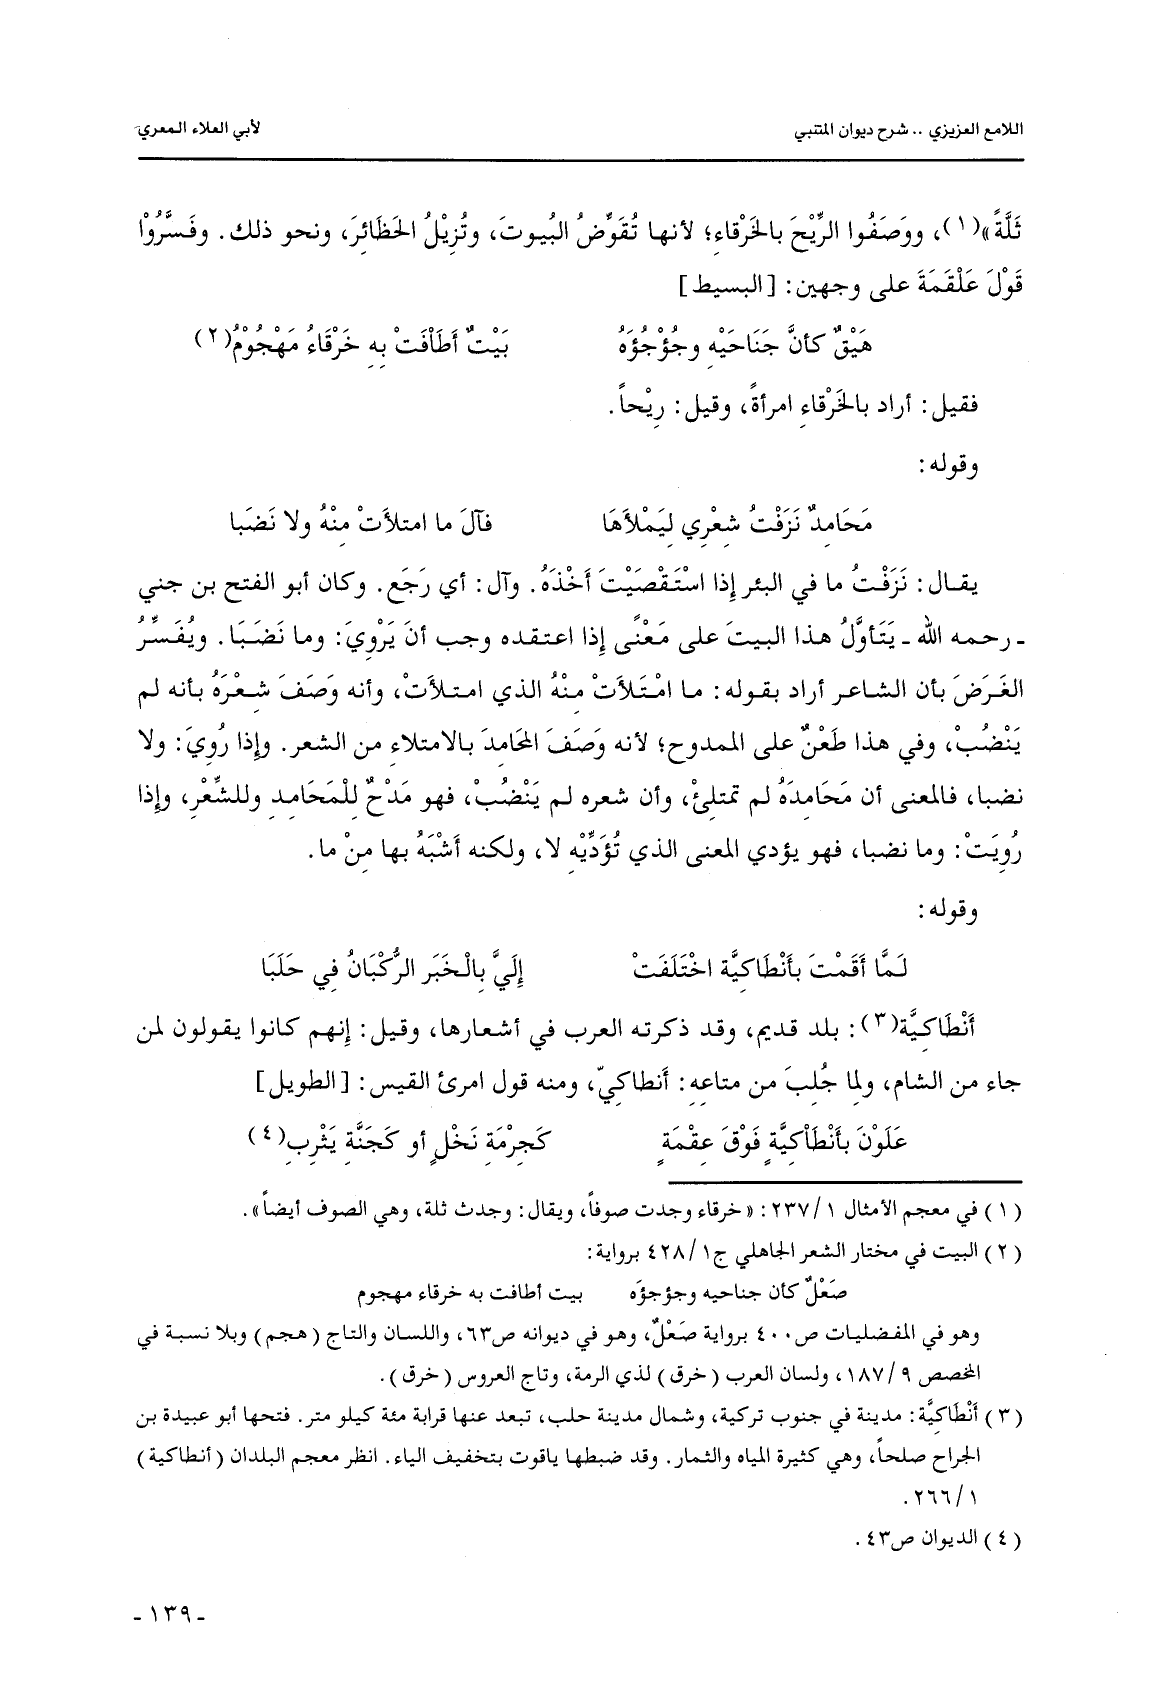 اللامع العزيزي .. شرح ديوان المتنبي لأبي العلاء المعري
ثَلَّةً»(١)، ووَصَفُوا الرِّيْحَ بالخَرْقاءِ؛ لأنها تُقَوِّضُ البُيوتَ، وتُزِيْلُ الحَظَائرَ، ونحو ذلك. وفَسَّرُوْا
قَوْلَ عَلْقَمَةَ على وجهين: [البسيط]
هَيْقٌ كأنَّ جَنَاحَيْهِ وجُؤْجُؤَهُ بَيْتٌ أَطَافَتْ بِهِ خَرْقَاءُ مَهْجُوْمُ(٢)
فقيل: أراد بالخَرْقاءِ امرأةً، وقيل: رِيْحاً.
وقوله:
مَحَامِدٌ نَزَفْتُ شِعْرِي لِيَمْلأَهَا فآلَ ما امتلأَتْ مِنْهُ ولا نَضَبا
يقال: نَزَفْتُ ما في البئر إذا اسْتَقْصَيْتَ أَخْذَهُ. وآل: أي رَجَع. وكان أبو الفتح بن جني
ـ رحمه الله ـ يَتَأوَّلُ هذا البيتَ على مَعْنًى إذا اعتقده وجب أن يَرْوِيَ: وما نَضَبَا. ويُفَسِّرُ
الغَرَضَ بأن الشاعر أراد بقوله: ما امْتَلَأَتْ مِنْهُ الذي امتلأَتْ، وأنه وَصَفَ شِعْرَهُ بأنه لم
يَنْضُبْ، وفي هذا طَعْنٌ على الممدوح؛ لأنه وَصَفَ المَحَامِدَ بالامتلاءِ من الشعر. وإذا رُوِيَ: ولا
نضبا، فالمعنى أن مَحَامِدَهُ لم تمتلئْ، وأن شعره لم يَنْضُبْ، فهو مَدْحٌ لِلْمَحَامِدِ وللشِّعْرِ، وإذا
رُوِيَتْ: وما نضبا، فهو يؤدي المعنى الذي تُؤَدِّيْهِ لا، ولكنه أَشْبَهُ بها مِنْ ما.
وقوله:
لَمَّا أَقَمْتَ بأَنْطَاكِيَّةَ اخْتَلَفَتْ إِلَيَّ بِالْخَبَرِ الرُّكْبَانُ فِي حَلَبَا
أَنْطَاكِيَّة(٣): بلد قديم، وقد ذكرته العرب في أشعارها، وقيل: إنهم كانوا يقولون لمن
جاء من الشام، ولِما جُلِبَ من متاعِهِ: أنطاكيّ، ومنه قول امرئ القيس: [الطويل]
عَلَوْنَ بأَنْطَاْكِيَّةٍ فَوْقَ عِقْمَةٍ كَجِرْمَةِ نَخْلٍ أو كَجَنَّةِ يَثْرِبِ(٤)
(١) في معجم الأمثال ١/ ٢٣٧: «خرقاء وجدت صوفاً، ويقال: وجدث ثلة، وهي الصوف أيضاً».
(٢) البيت في مختار الشعر الجاهلي ج١/ ٤٢٨ برواية:
صَعْلٌ كأن جناحيه وجؤجؤَه بيت أطافت به خرقاء مهجوم
وهو في المفضليات ص٤٠٠ برواية صَعْلٌ، وهو في ديوانه ص٦٣، واللسان والتاج (هجم) وبلا نسبة في
المخصص ٩/ ١٨٧، ولسان العرب (خرق) لذي الرمة، وتاج العروس (خرق).
(٣) أَنْطَاكِيَّة: مدينة في جنوب تركية، وشمال مدينة حلب، تبعد عنها قرابة مئة كيلو متر. فتحها أبو عبيدة بن
الجراح صلحاً، وهي كثيرة المياه والثمار. وقد ضبطها ياقوت بتخفيف الياء. انظر معجم البلدان (أنطاكية)
١/ ٢٦٦.
(٤) الديوان ص٤٣.
ـ ١٣٩ ـ